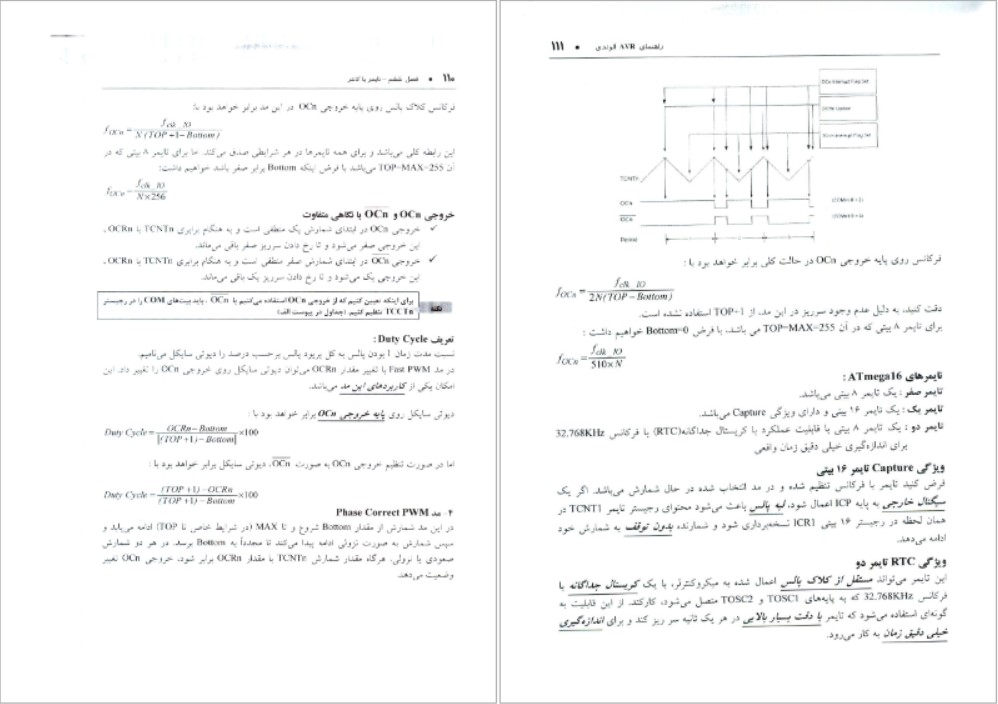 ۱۱۰ • فصل ششم – تایمر یا کانتر
فرکانس کلاک پالس روی پایه خروجی OCn در این مد برابر خواهد بود با:
fOCn = fclk_IO / N(TOP+1-Bottom)
این رابطه کلی می‌باشد و برای همه تایمرها در هر شرایطی صدق می‌کند. اما برای تایمر ۸ بیتی که در
آن TOP=MAX=255 می‌باشد با فرض اینکه Bottom برابر صفر باشد خواهیم داشت:
fOCn = fclk_IO / N×256
خروجی OCn و O̅C̅n̅ با نگاهی متفاوت
✓ خروجی OCn در ابتدای شمارش یک منطقی است و به هنگام برابری TCNTn با OCRn،
این خروجی صفر می‌شود و تا رخ دادن سرریز صفر باقی می‌ماند.
✓ خروجی O̅C̅n̅ در ابتدای شمارش صفر منطقی است و به هنگام برابری TCNTn با OCRn،
این خروجی یک می‌شود و تا رخ دادن سرریز یک باقی می‌ماند.
نکته
برای اینکه تعیین کنیم که از خروجی OCn استفاده می‌کنیم یا O̅C̅n̅ ، باید بیت‌های COM را در رجیستر
TCCTn تنظیم کنیم. (جداول در پیوست الف)
تعریف Duty Cycle :
نسبت مدت زمان 1 بودن پالس به کل پریود پالس برحسب درصد را دیوتی سایکل می‌نامیم.
در مد Fast PWM با تغییر مقدار OCRn می‌توان دیوتی سایکل روی خروجی OCn را تغییر داد. این
امکان یکی از کاربردهای این مد می‌باشد.
دیوتی سایکل روی پایه خروجی OCn برابر خواهد بود با :
Duty Cycle = OCRn-Bottom / [(TOP+1)-Bottom] ×100
اما در صورت تنظیم خروجی OCn به صورت O̅C̅n̅، دیوتی سایکل برابر خواهد بود با :
Duty Cycle = (TOP+1)-OCRn / (TOP+1)-Bottom ×100
۴- مد Phase Correct PWM
در این مد شمارش از مقدار Bottom شروع و تا MAX (در شرایط خاص تا TOP) ادامه می‌یابد و
سپس شمارش به صورت نزولی ادامه پیدا می‌کند تا مجدداً به Bottom برسد. در هر دو شمارش
صعودی یا نزولی، هرگاه مقدار شمارش TCNTn با مقدار OCRn برابر شود، خروجی OCn تغییر
وضعیت می‌دهد.
راهنمای AVR الوندی • ۱۱۱
TCNTn
OCn
O̅C̅n̅
Period
فرکانس روی پایه خروجی OCn در حالت کلی برابر خواهد بود با :
fOCn = fclk_IO / 2N(TOP-Bottom)
دقت کنید، به دلیل عدم وجود سرریز در این مد، از TOP+1 استفاده نشده است.
برای تایمر ۸ بیتی که در آن TOP=MAX=255 می باشد، با فرض Bottom=0 خواهیم داشت :
fOCn = fclk_IO / 510×N
تایمرهای ATmega16 :
تایمر صفر : یک تایمر ۸ بیتی می‌باشد.
تایمر یک : یک تایمر ۱۶ بیتی و دارای ویژگی Capture می‌باشد.
تایمر دو : یک تایمر ۸ بیتی با قابلیت عملکرد با کریستال جداگانه(RTC) با فرکانس 32.768KHz
برای اندازه‌گیری خیلی دقیق زمان واقعی
ویژگی Capture تایمر ۱۶ بیتی
فرض کنید تایمر با فرکانس تنظیم شده و در مد انتخاب شده در حال شمارش می‌باشد. اگر یک
سیگنال خارجی به پایه ICP اعمال شود، لبه پالس باعث می‌شود محتوای رجیستر تایمر TCNT1 در
همان لحظه در رجیستر ۱۶ بیتی ICR1 نسخه‌برداری شود و شمارنده بدون توقف به شمارش خود
ادامه می‌دهد.
ویژگی RTC تایمر دو
این تایمر می‌تواند مستقل از کلاک پالس اعمال شده به میکروکنترلر، با یک کریستال جداگانه با
فرکانس 32.768KHz که به پایه‌های TOSC1 و TOSC2 متصل می‌شود، کارکند. از این قابلیت به
گونه‌ای استفاده می‌شود که تایمر با دقت بسیار بالایی در هر یک ثانیه سر ریز کند و برای اندازه‌گیری
خیلی دقیق زمان به کار می‌رود.